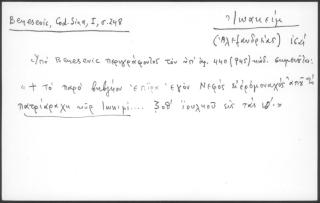 Benesevic, Cod. Sina, I, σ. 248
Ἰωακείμ
(Ἀλεξανδρείας) ις΄αἰ
Ὑπὸ Benesevic περιγράφοντος τὸν ὑπ' ἀρ. 440 (745) κώδ. σημειοῦται:
« + τὸ παρὸ βιβλήον ἐπῖρα ἐγὸν Νεφὸς ἱερόμοναχὸς ἀπὸ
πατριάρχη κῦρ Ιωκιμι.... ζοθ΄ Ἰουλήου εἰς τὰς ιθ΄.»